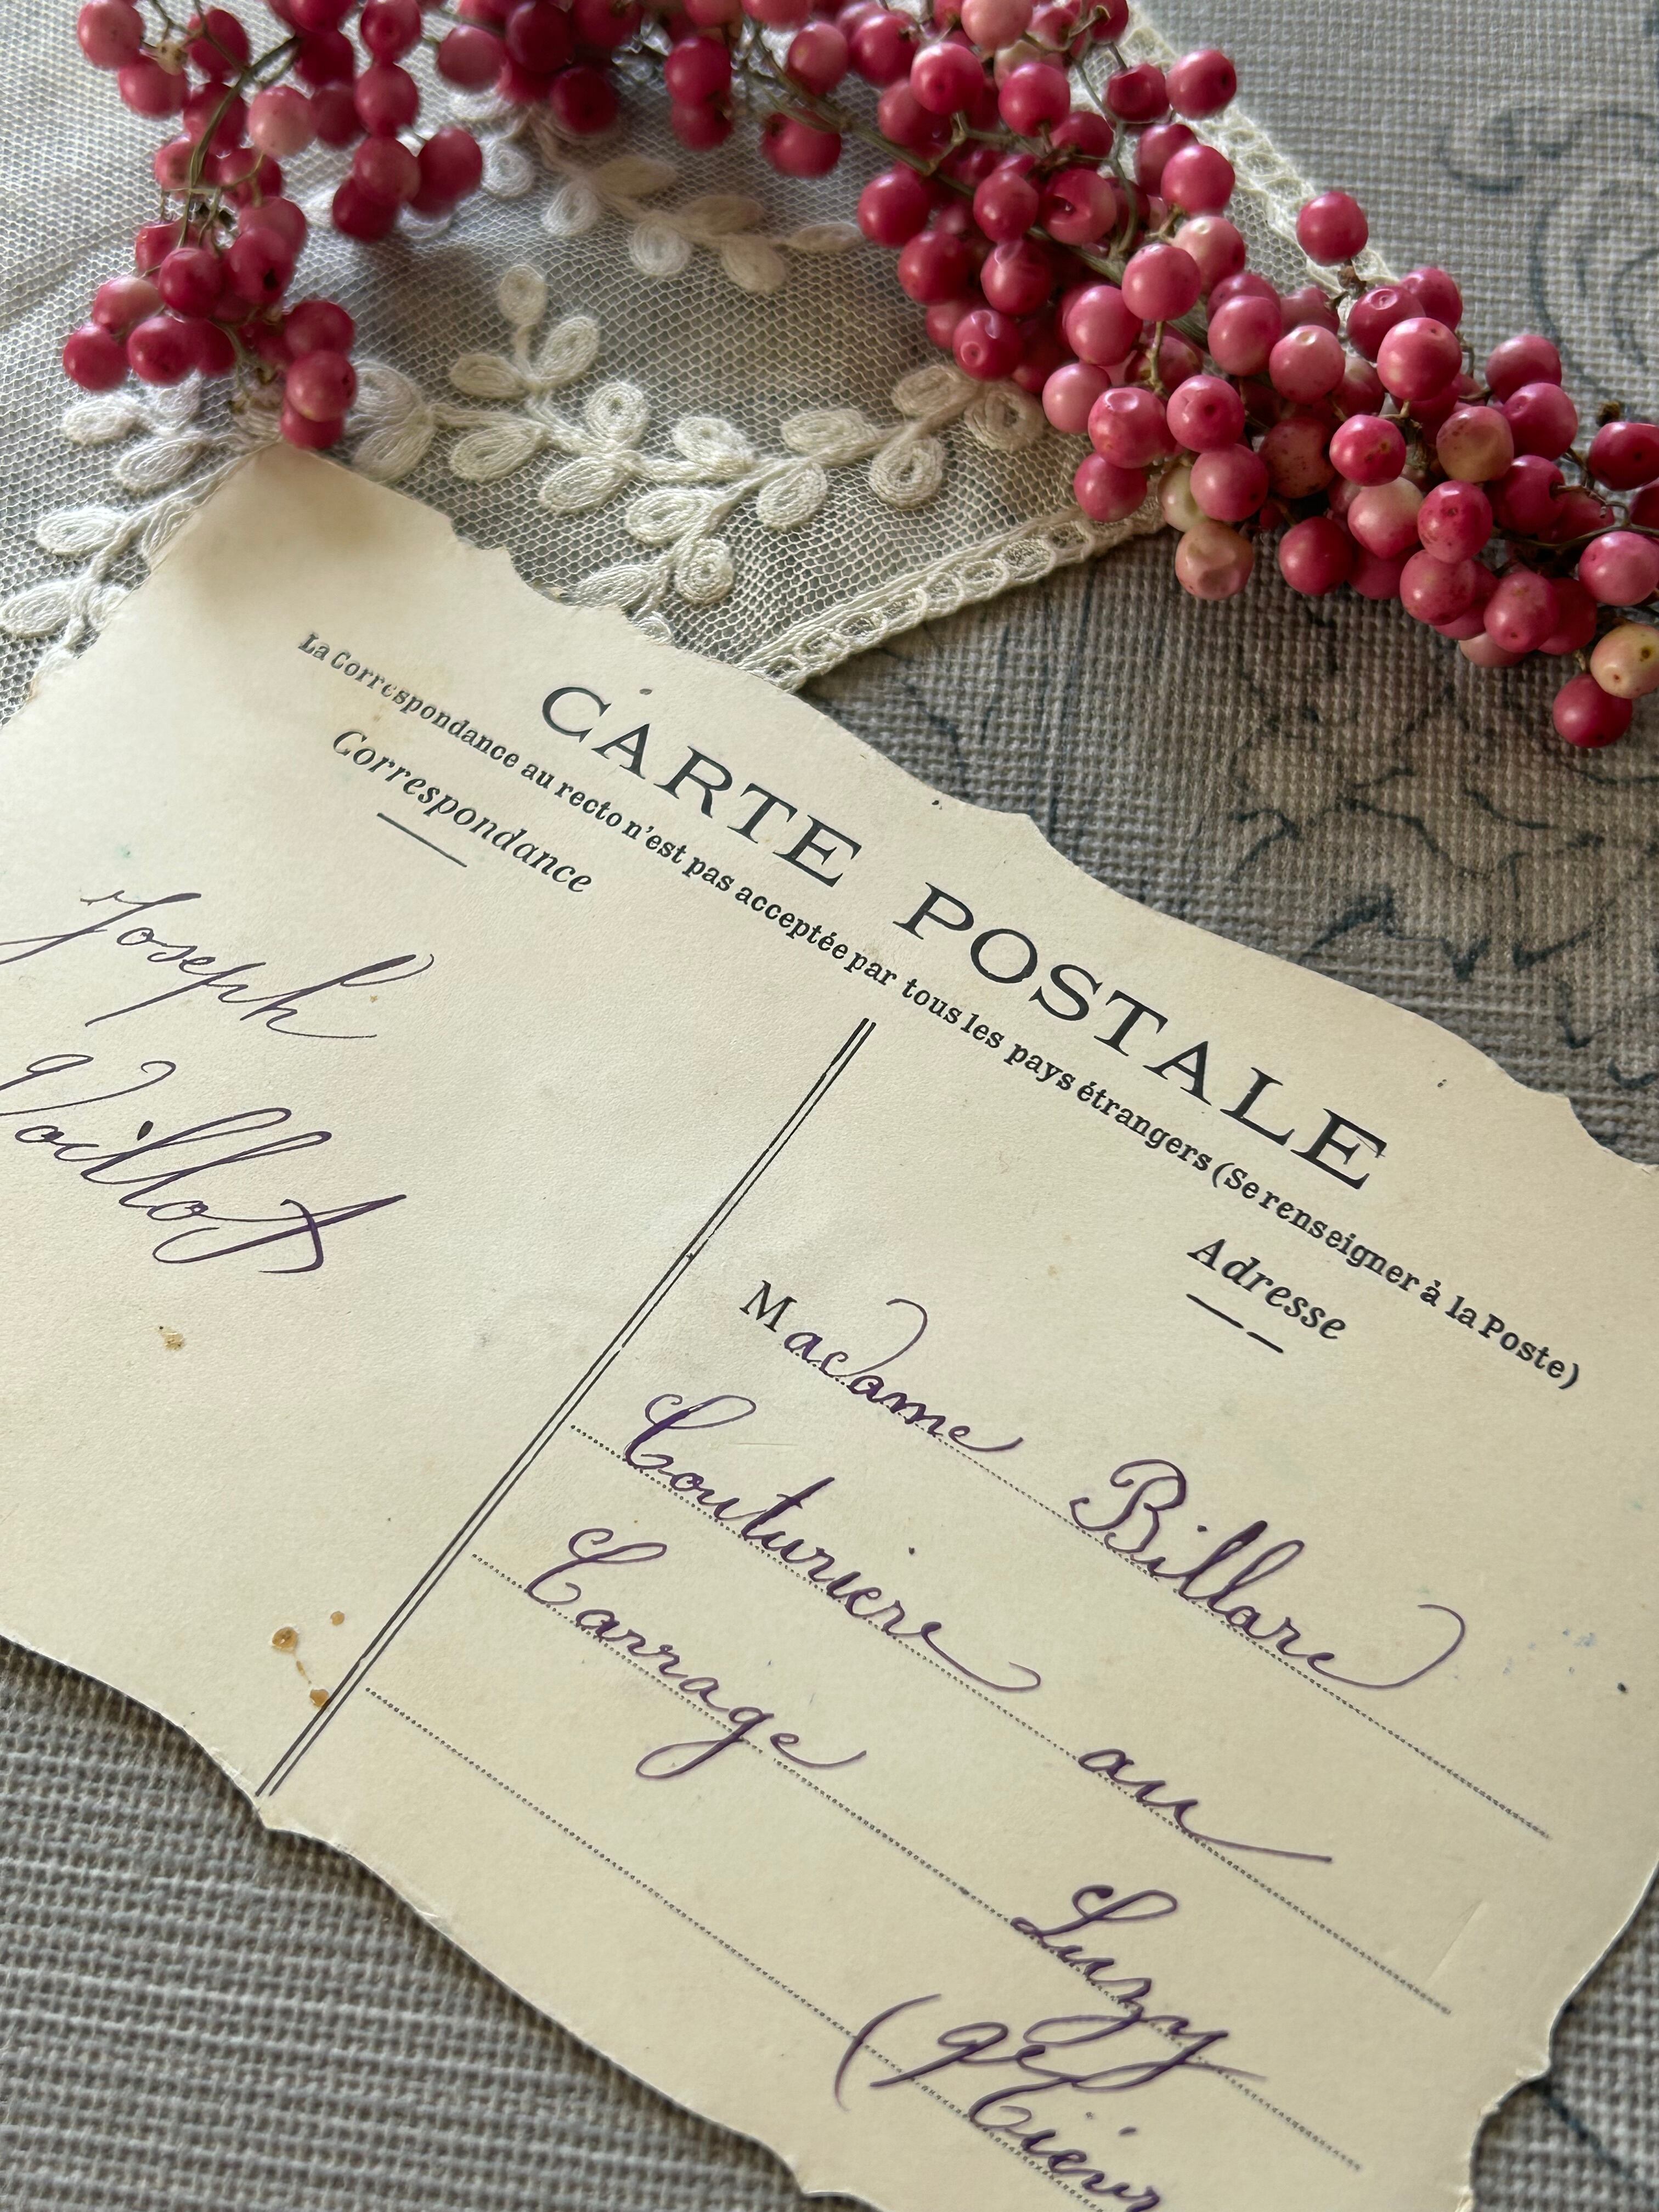 CARTE POSTALE
La Correspondance au recto n'est pas acceptée par tous les pays étrangers (Se renseigner à la Poste)
Correspondance
Adresse
Joseph
Voillot
Madame Billare
Couturiere au
Carrage
Luzy